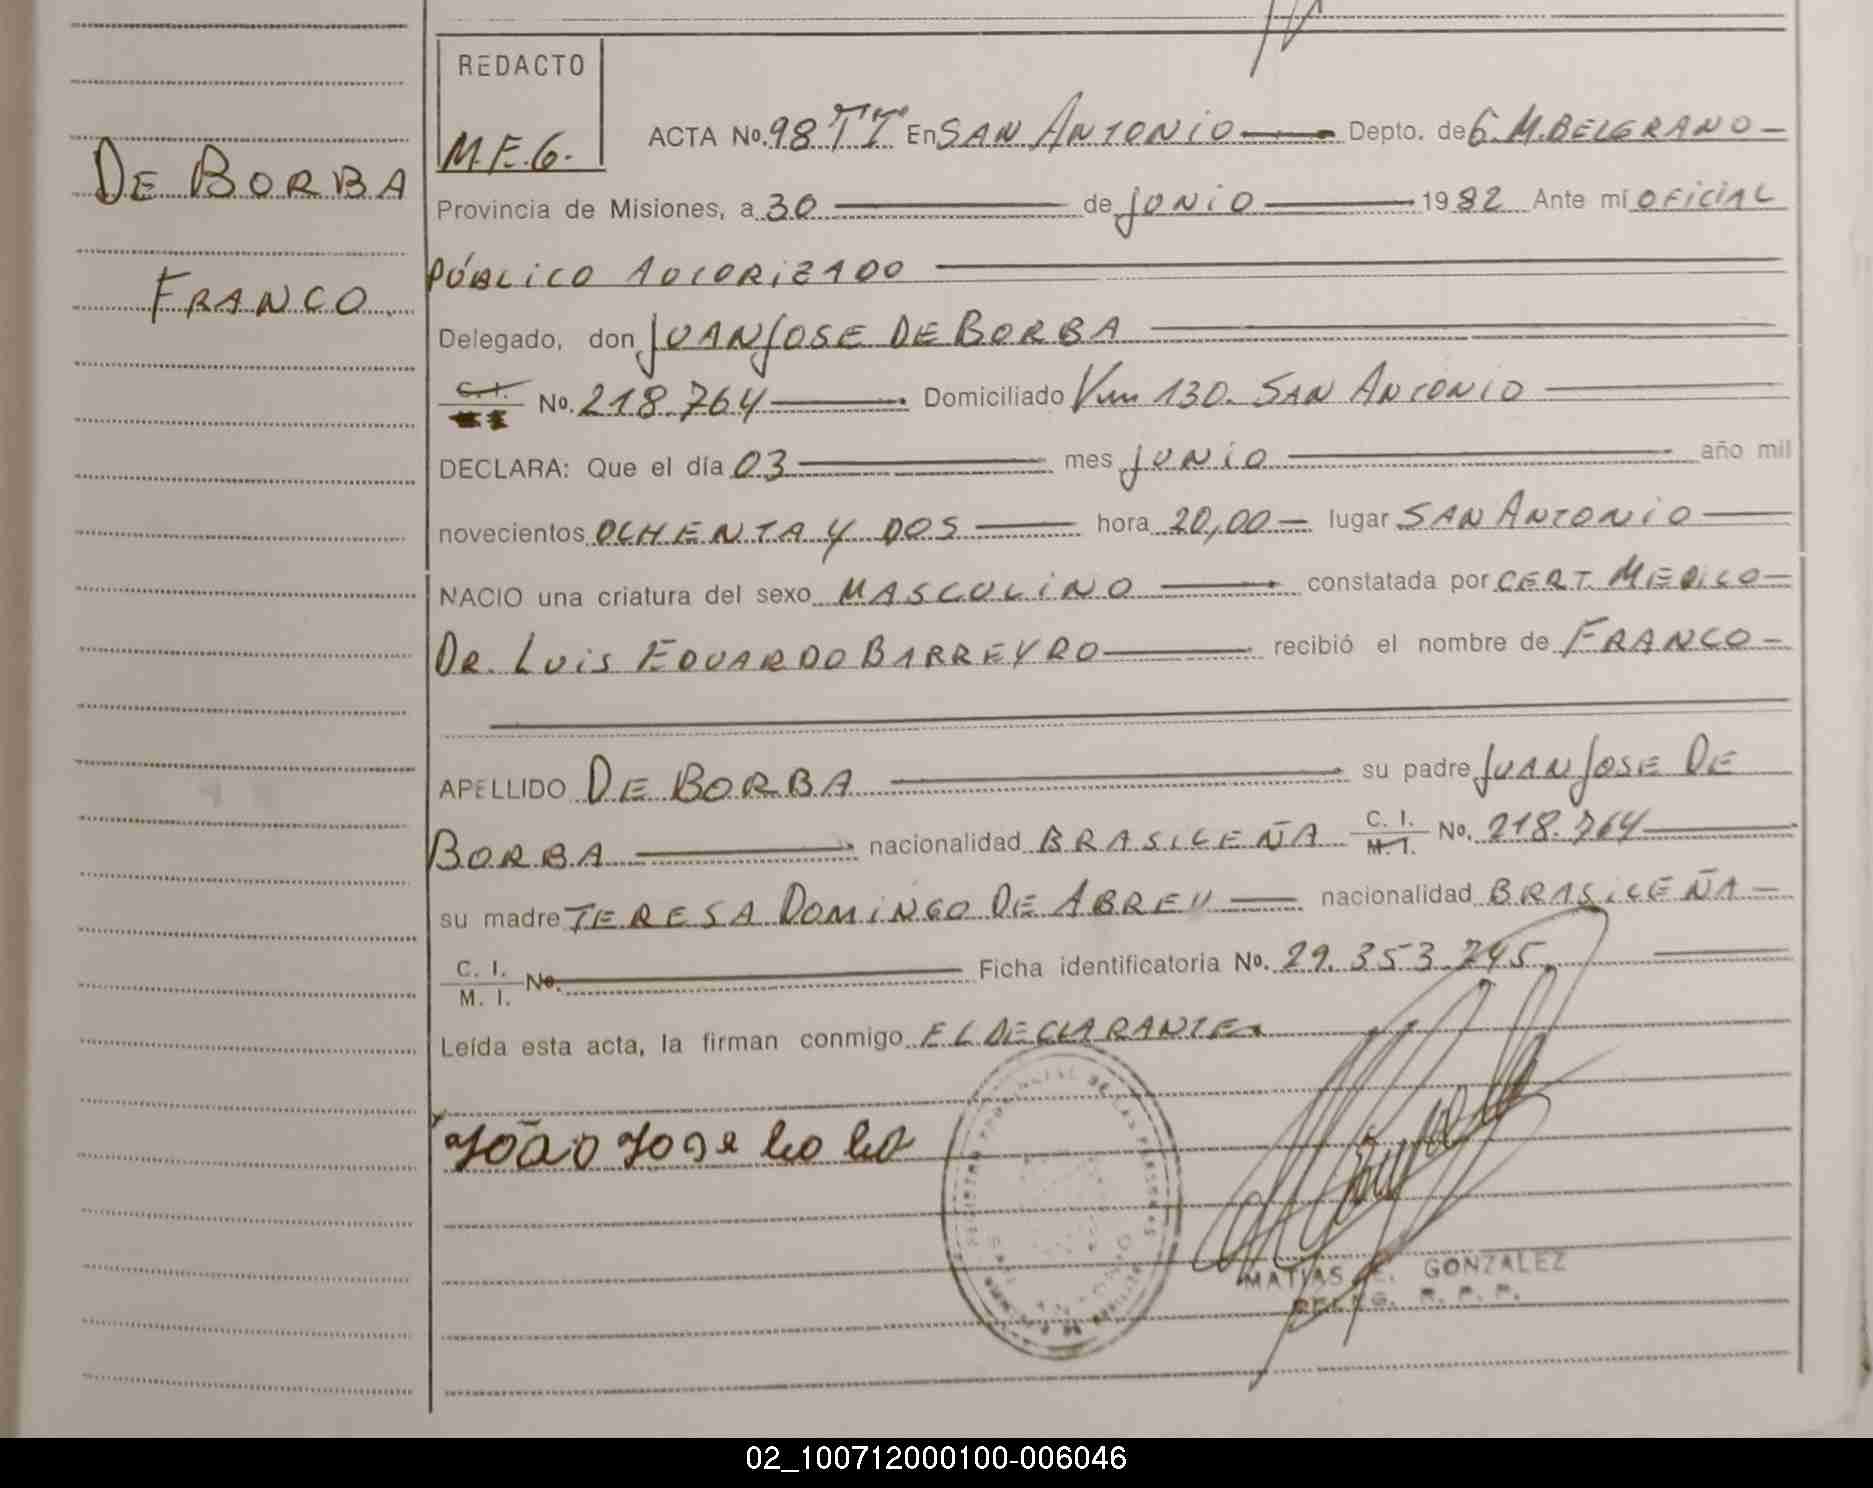 REDACTO
M.E.G.
ACTA No. 98 TI En SAN ANTONIO Depto. de G. M. BELGRANO
DE BORBA
Provincia de Misiones, a 30 de junio 1982 Ante mí OFICIAL
PÚBLICO AUTORIZADO
FRANCO
Delegado, don JUAN JOSE DE BORBA
C. I. No. 218.764 Domiciliado Km 130. SAN ANTONIO
DECLARA: Que el día 03 mes junio año mil
novecientos OCHENTA Y DOS hora 20,00 lugar SAN ANTONIO
NACIO una criatura del sexo MASCULINO constatada por CERT. MEDICO
DR. LUIS EDUARDO BARREYRO recibió el nombre de FRANCO
APELLIDO DE BORBA su padre JUAN JOSE DE
BORBA nacionalidad BRASILEÑA C. I. M. I. No. 218.764
su madre TERESA DOMINGO DE ABREU nacionalidad BRASILEÑA
C. I. M. I. No. Ficha identificatoria No. 29.353.245
Leída esta acta, la firman conmigo EL DECLARANTE.
João Jose
REGISTRO PROVINCIAL DE LAS PERSONAS
SAN ANTONIO
MATIAS E. GONZALEZ
DELEG. R. P. P.
02_100712000100-006046